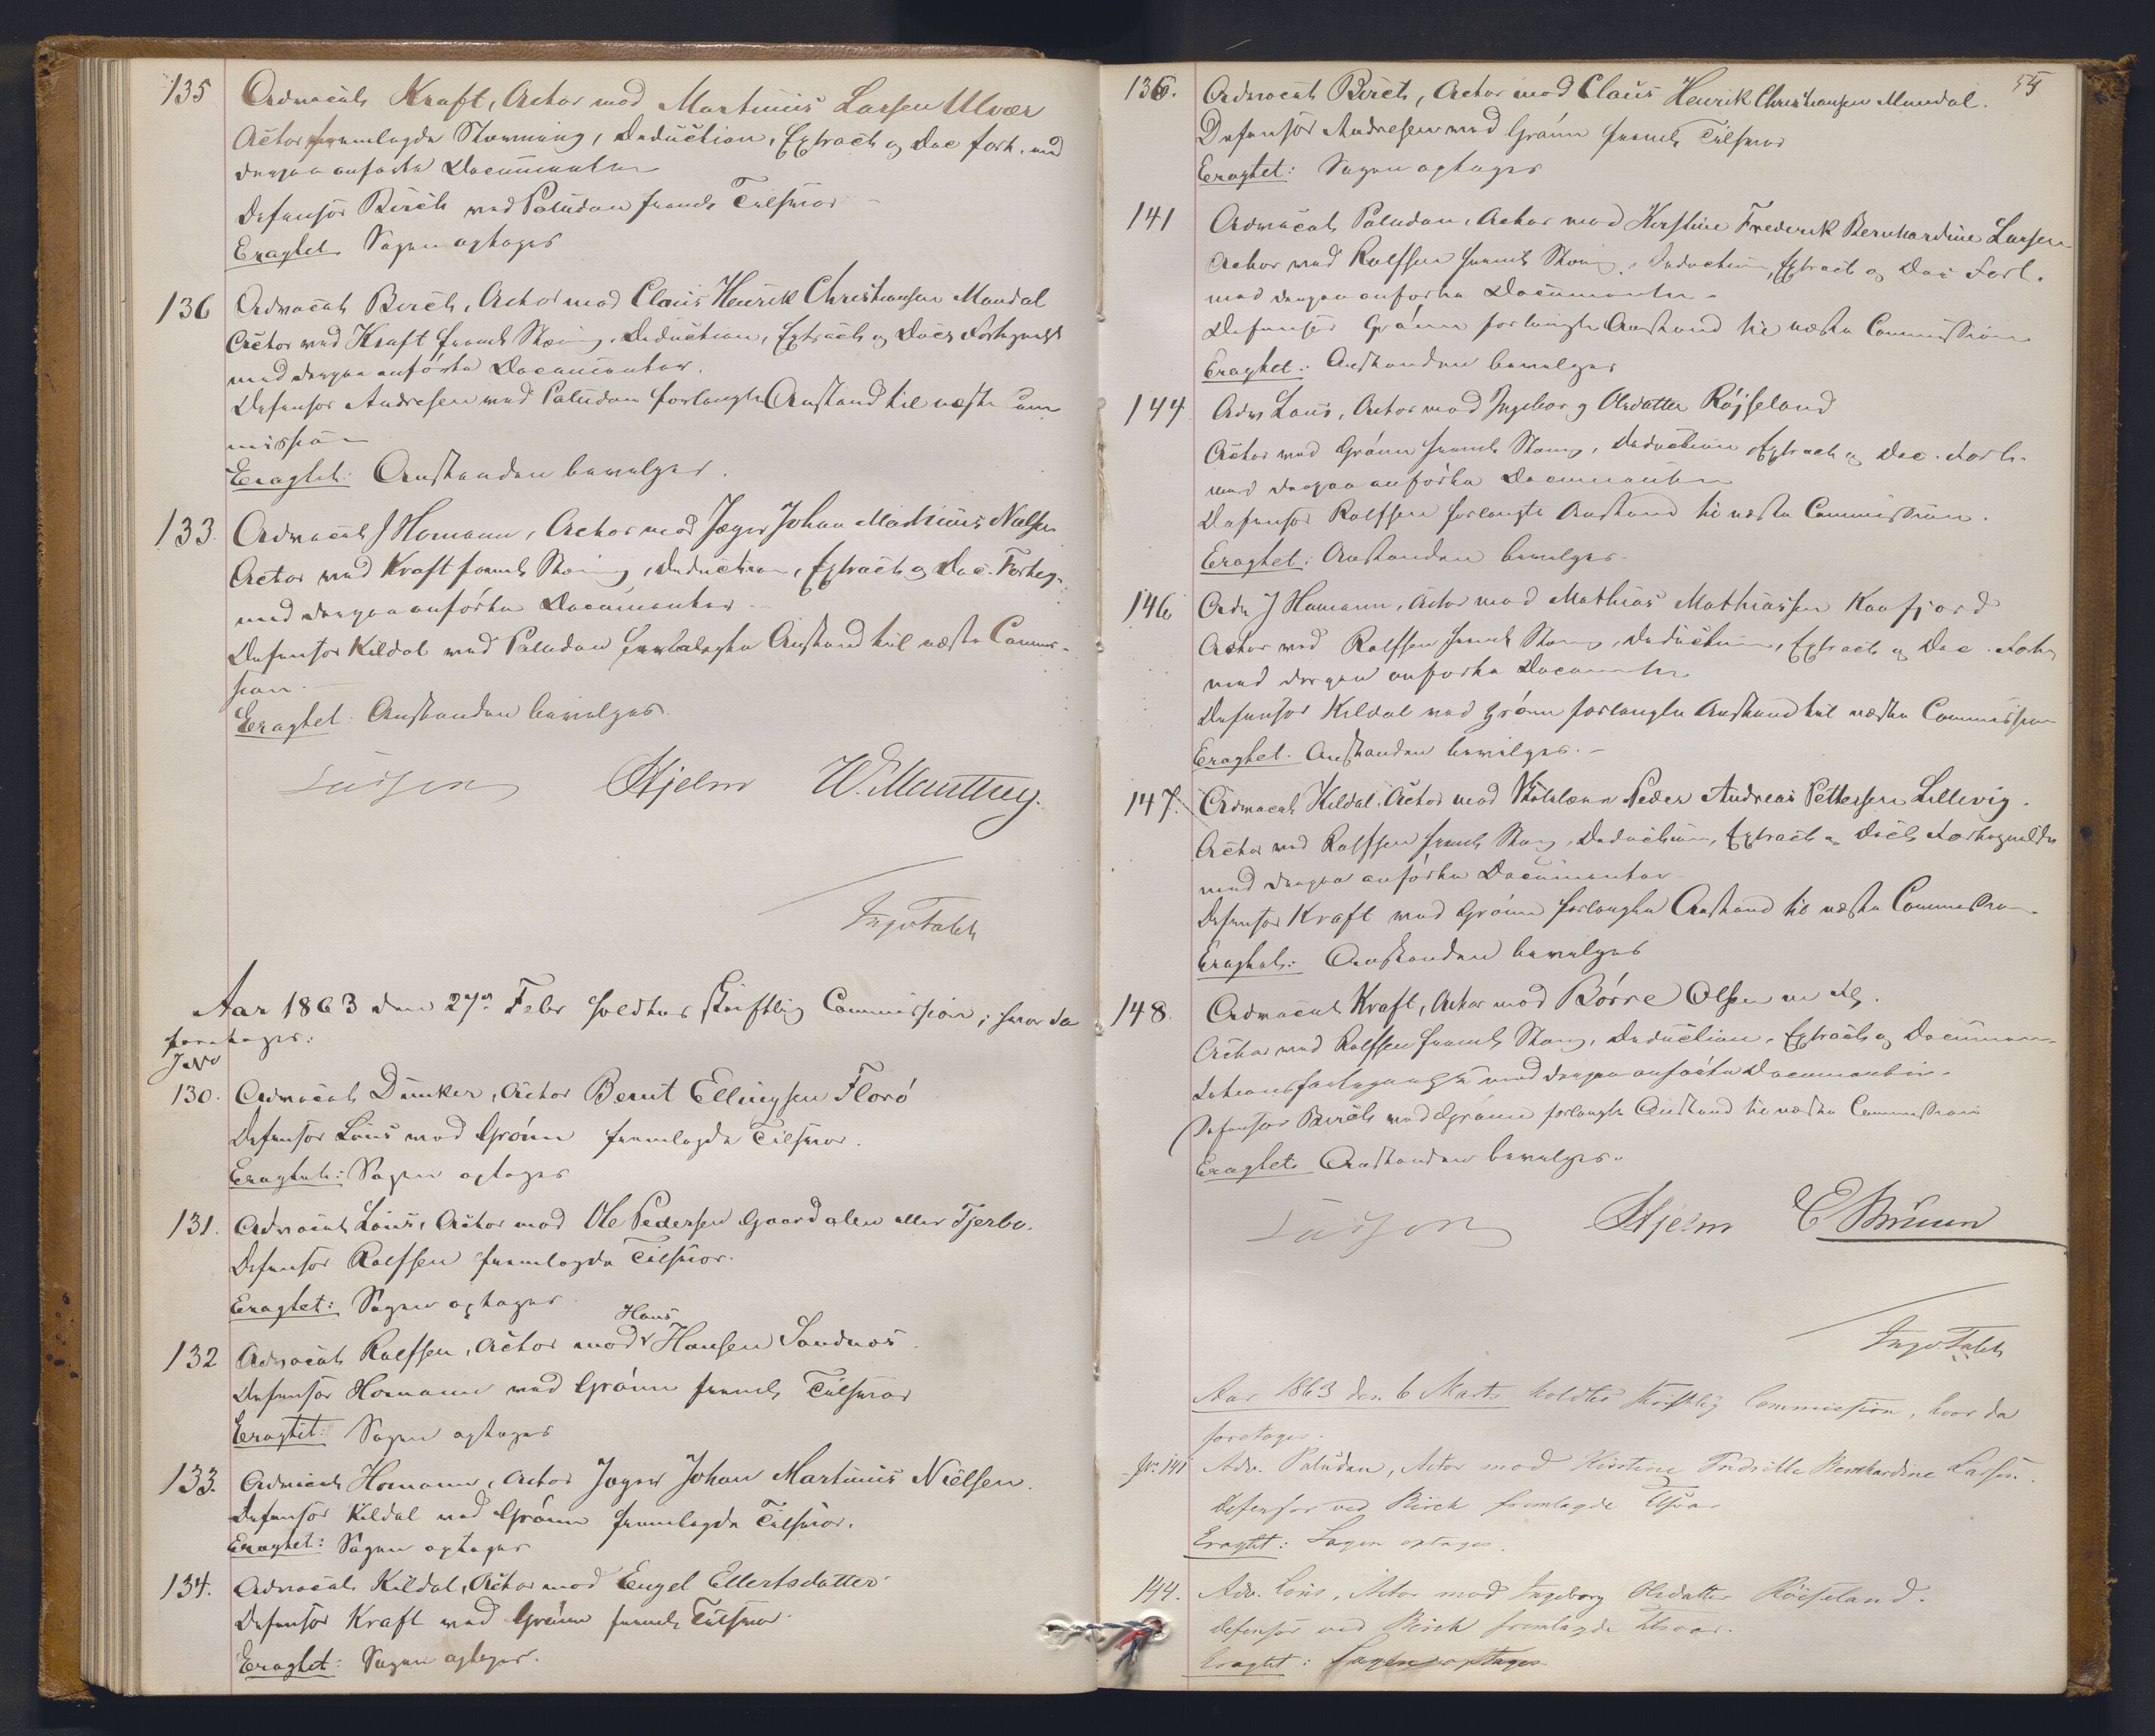 135 Advocat Kraft, Actor mod Martinus Larsen Ulvær
Actor fremlagde Stævning, Deduction, Extract og Doc fort. med
derpaa anførte Documenter
Defensor Birch ved Paludan freml. Tilsvar
Eragtet Sagen optages
136 Advocat Birch, Actor mod Claus Henrik Christiansen Mandal
Actor ved Kraft freml Stævning, Deduction, Extract og Docs Fortegnelse
med derpaa anførte Documenter.
Defensor Andresen ved Paludan forlangte Anstand til næste Com
mission
Eragtet: Anstanden bevilges.
133. Advocat J Homann, Actor mod Jæger Johan Martinus Nielsen
Actor ved Kraft freml Stævning, Deduction, Extract og Doc. Forteg-
med derpaa anførte Documenter
Defensor Kildal ved Paludan forlangte Anstand til næste Commis-
sion.
Eragtet: Anstanden bevilges.
Lasson Hjelm W. Manthey.
Ingv Falch
Aar 1863 den 27de Febr holdtes skriftlig Commission, hvor da
foretages:
J No
130. Advocat Dunker, Actor Bernt Ellingsen Florö
Defensor Lous ved Grönn fremlagde Tilsvar.
Eragtet: Sagen optages
131. Advocat Lous, Actor mod Ole Pedersen Gaardalen eller Tjerbo.
Defensor Rolfsen fremlagde Tilsvar.
Eragtet: Sagen optages
132 Advocat Rolfsen, Actor mod Hans Hansen Sandnæs
Defensor Homann ved Grönn freml. Tilsvar
Eragtet: Sagen optages
133. Advocat Homann, Actor Jæger Johan Martinus Nielsen.
Defensor Kildal ved Grönn fremlagde Tilsvar.
Eragtet: Sagen optages
134. Advocat Kildal, Actor mod Engel Ellertsdatter
Defensor Kraft ved Grönn freml. Tilsvar
Eragtet: Sagen optages.
55
136. Advocat Birch, Actor mod Claus Henrik Christiansen Mandal.
Defensor Andresen ved Grönn freml. Tilsvar
Eragtet: Sagen optages
141 Advocat Paludan, Actor mod Kirstine Frederik Bernhardine Larsen
Actor ved Rolfsen freml Stævning, Deduction, Extract og Doc Fort.
med derpaa anførte Documenter.
Defensor Grönn forlangte Anstand til næste Commission
Eragtet: Anstanden bevilges
144. Adv Lous, Actor mod Ingeborg Olsdatter Röjseland
Actor ved Grönn freml Stævng, Deduction Extract og Doc. Fort.
med derpaa anførte Documenter
Defensor Rolfsen forlangte Anstand til næste Commission.
Eragtet: Anstanden bevilges
146 Adv J Homann, Actor mod Mathias Mathiassen Kaafjord
Actor ved Rolfsen freml Stævng, Deduction, Extract og Doc. Fort
med derpaa anførte Documenter
Defensor Kildal ved Grönn forlangte Anstand til næste Commission
Eragtet. Anstanden bevilges.
147. Advocat Kildal, Actor mod Peder Andreas Pettersen Lillevig.
Actor ved Rolfsen freml Stævng, Deduction, Extract og Doct Fortegnelse
med derpaa anførte Documenter
Defensor Kraft ved Grönn forlangte Anstand til næste Commission.
Eragtet: Anstanden bevilges
148. Advocat Kraft, Actor mod Börre Olsen m fl.
Actor ved Rolfsen freml Stævng, Deduction, Extract og Documen-
tationsfortegnelse med derpaa anførte Documenter.
Defensor Birch ved Grönn forlangte Anstand til næste Commission
Eragtet: Anstanden bevilges.
Lasson Hjelm C Bruun
Ingv. Falch
Aar 1863 den 6 Marts holdtes skriftlig Commission, hvor da
foretages.
Jr. 141 Adv. Paludan, Actor mod Kirstine Fredrikke Bernhardine Larsen.
Defensor ved Birch fremlagde Tilsvar
Eragtet: Sagen optages.
144. Adv. Lous, Actor mod Ingeborg Olsdatter Röiseland.
Defensor ved Birch fremlagde Tilsvar.
Eragtet: Sagen optages